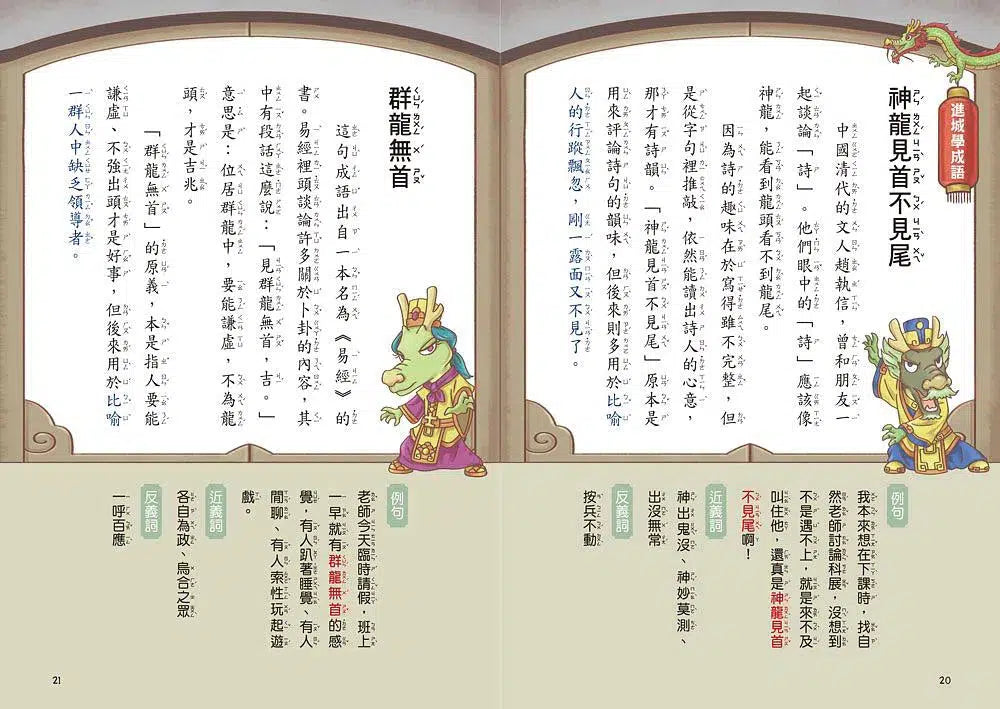 進城學成語
神龍見首不見尾
中國清代的文人趙執信，曾和朋友一
起談論「詩」。他們眼中的「詩」應該像
神龍，能看到龍頭看不到龍尾。
因為詩的趣味在於寫得雖不完整，但
是從字句裡推敲，依然能讀出詩人的心意，
那才有詩韻。「神龍見首不見尾」原本是
用來評論詩句的韻味，但後來則多用於比喻
人的行蹤飄忽，剛一露面又不見了。
例句
我本來想在下課時，找自
然老師討論科展，沒想到
不是遇不上，就是來不及
叫住他，還真是神龍見首
不見尾啊！
近義詞
神出鬼沒、神妙莫測、
出沒無常
反義詞
按兵不動
20
群龍無首
這句成語出自一本名為《易經》的
書。易經裡頭談論許多關於卜卦的內容，其
中有段話這麼說：「見群龍無首，吉。」
意思是：位居群龍中，要能謙虛，不為龍
頭，才是吉兆。
「群龍無首」的原義，本是指人要能
謙虛、不強出頭才是好事，但後來用於比喻
一群人中缺乏領導者。
例句
老師今天臨時請假，班上
一早就有群龍無首的感
覺，有人趴著睡覺、有人
閒聊、有人索性玩起遊
戲。
近義詞
各自為政、烏合之眾
反義詞
一呼百應
21